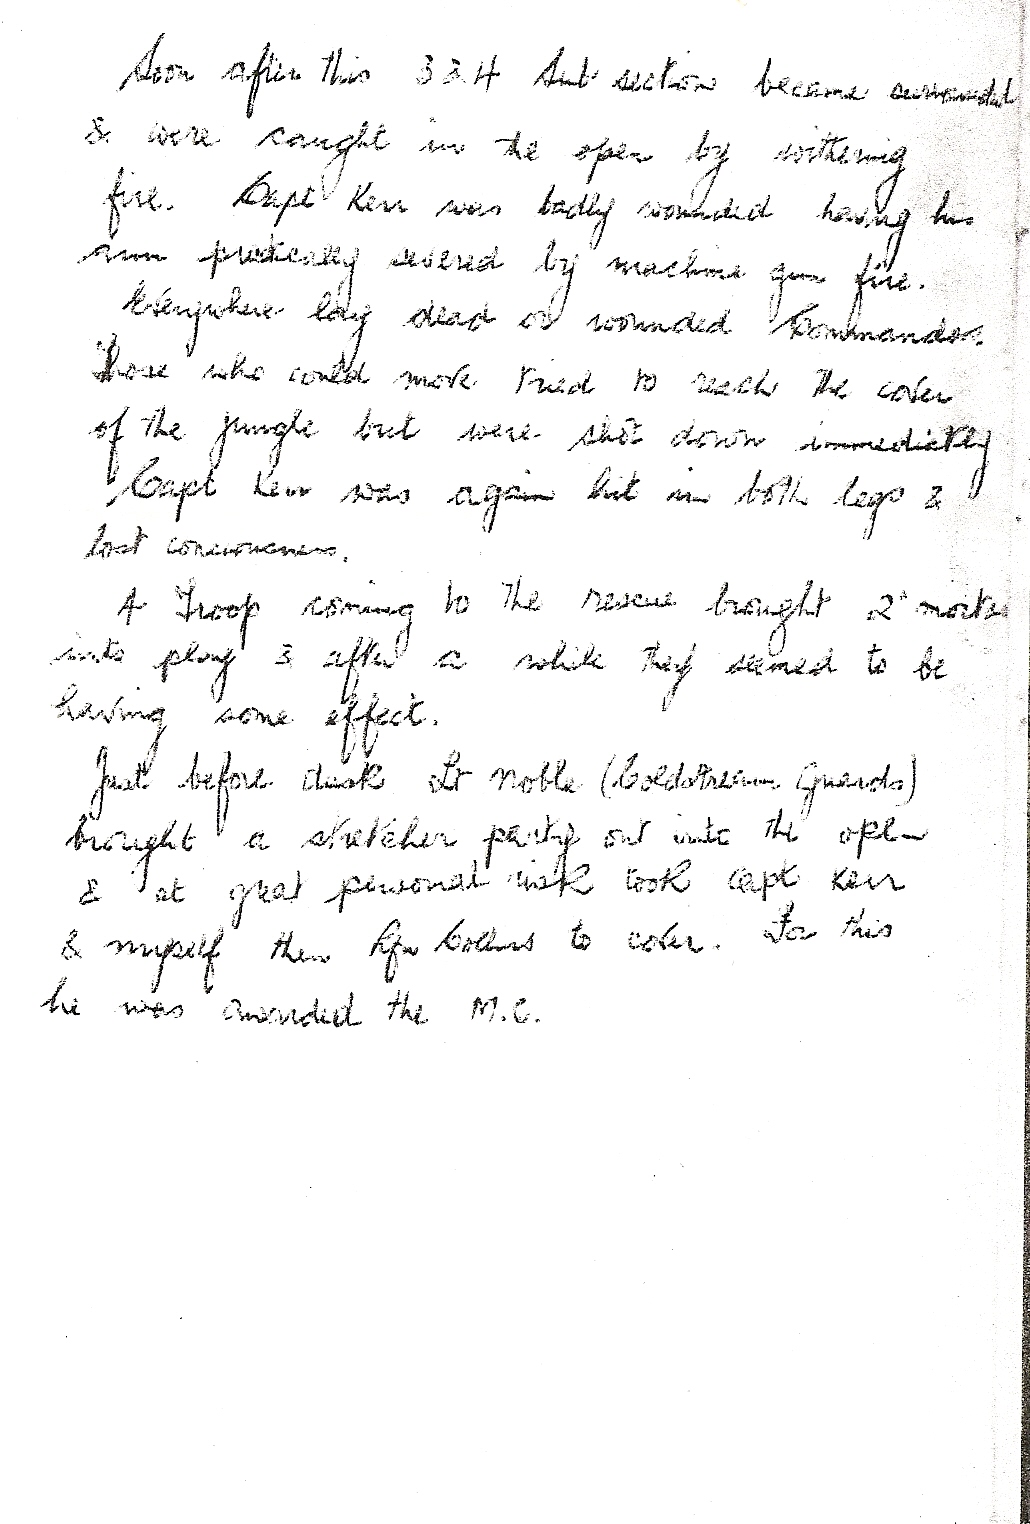 Soon after this 3 & 4 Sub section became surrounded
& were caught in the open by withering
fire. Capt Kerr was badly wounded having his
arm practically severed by machine gun fire.
Everywhere lay dead or wounded Commandos.
Those who could move tried to reach the cover
of the jungle but were shot down immediately
Capt Kerr was again hit in both legs &
lost consciousness.
A Troop coming to the rescue brought 2" mortars
into play & after a while they seemed to be
having some effect.
Just before dusk Lt Noble (Coldstream Guards)
brought a stretcher party out into the open
& at great personal risk took Capt Kerr
& myself then Rfn Collins to cover. For this
he was awarded the M.C.